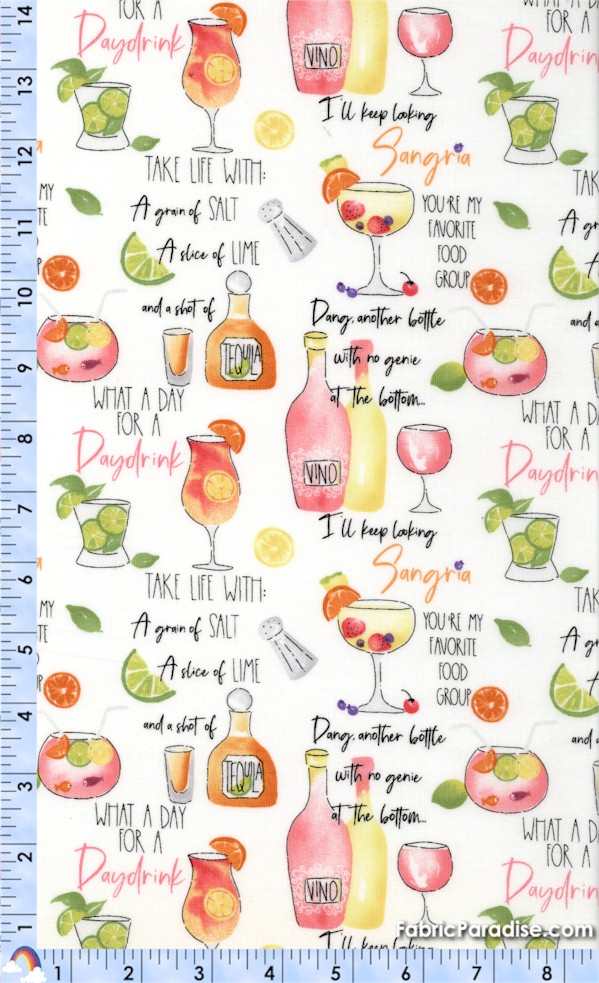 14
13
12
11
10
9
8
7
6
5
4
3
2
1
FOR A
Daydrink
VINO
I'll keep looking
WHAT A DAY
FOR A
Daydrink
TAKE LIFE WITH:
Sangria
A grain of SALT
YOU'RE MY
FAVORITE
FOOD
GROUP
A slice of LIME
and a shot of
TEQUILA
Dang, another bottle
with no genie
at the bottom...
WHAT A DAY
FOR A
Daydrink
VINO
I'll keep looking
WHAT A DA
FOR A
Daydrin
TAKE LIFE WITH:
Sangria
A grain of SALT
YOU'RE MY
FAVORITE
FOOD
GROUP
A slice of LIME
and a shot of
TEQUILA
Dang, another bottle
with no genie
at the bottom...
WHAT A DAY
FOR A
Daydrink
VINO
I'll keep looking
WHAT A D
FOR A
Daydrin
FabricParadise.com
1 2 3 4 5 6 7 8